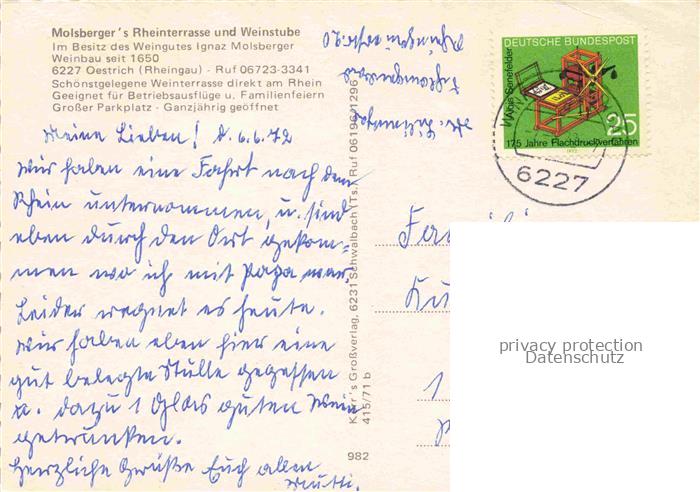 Molsberger's Rheinterrasse und Weinstube
Im Besitz des Weingutes Ignaz Molsberger
Weinbau seit 1650
6227 Oestrich (Rheingau) - Ruf 06723-3341
Schönstgelegene Weinterrasse direkt am Rhein
Geeignet für Betriebsausflüge u. Familienfeiern
Großer Parkplatz - Ganzjährig geöffnet
Meine Lieben! d. 6.6.72
Wir haben eine Fahrt nach dem
Rhein unternommen, u. sind
eben durch den Ort gekom-
men wo ich mit Papa war.
Leider regnet es heute.
Wir haben eben hier eine
gut belegte Stulle gegessen
u. dazu 1 Glas guten Wein
getrunken.
Herzliche Grüße Euch allen
Mutti.
Karr's Großverlag, 6231 Schwalbach (Ts.) Ruf 06196/1296
415/71 b
982
DEUTSCHE BUNDESPOST
Alois Senefelder
25
175 Jahre Flachdruckverfahren
6227
1
privacy protection
Datenschutz